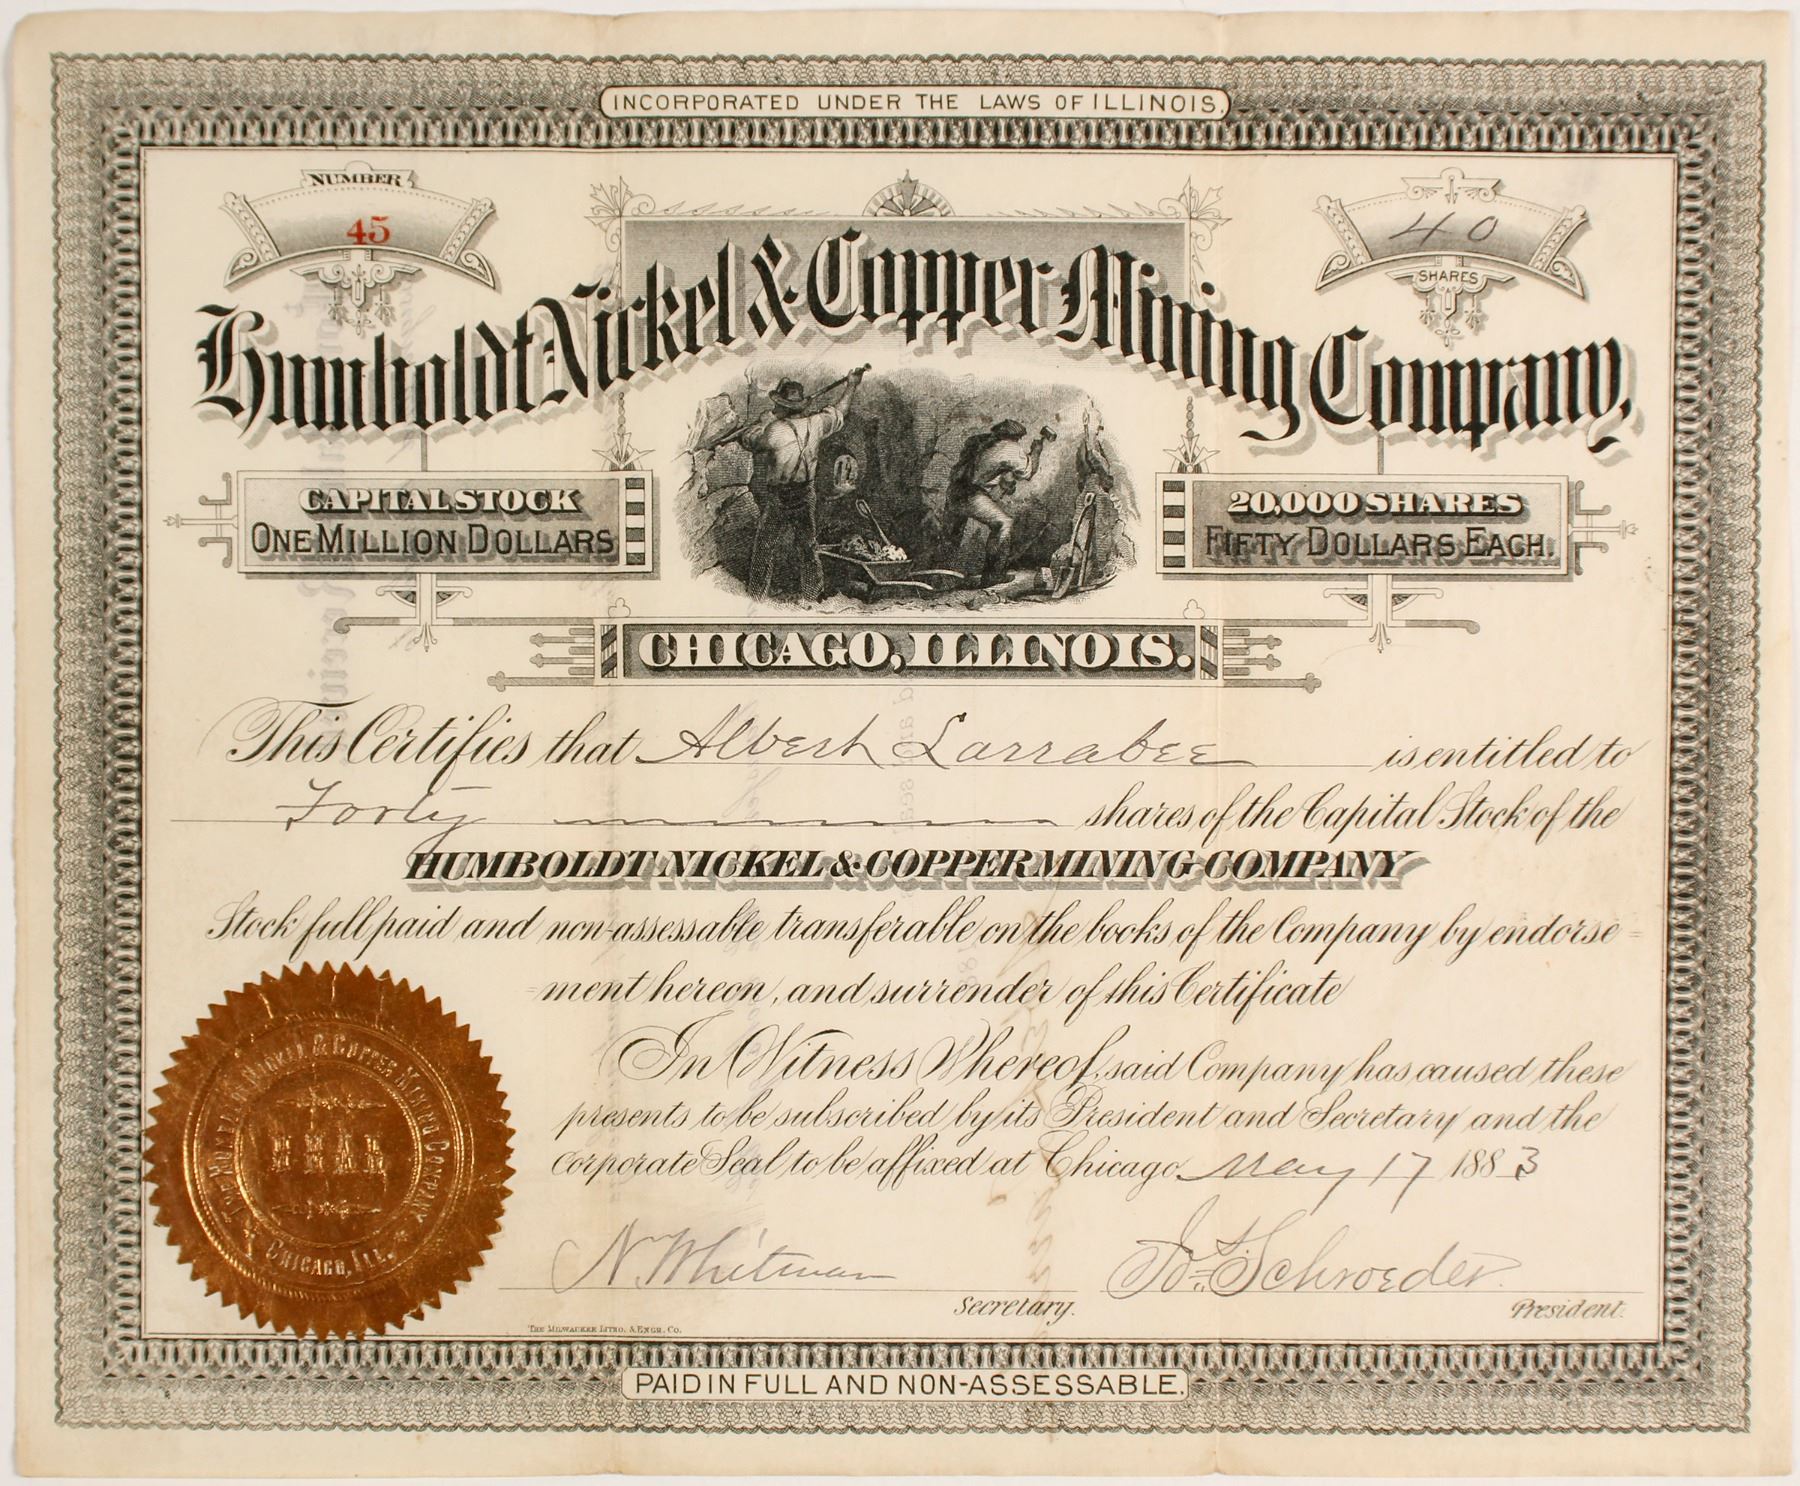 INCORPORATED UNDER THE LAWS OF ILLINOIS.
NUMBER
45
40
SHARES
Humboldt Nickel & Copper Mining Company,
CAPITAL STOCK
ONE MILLION DOLLARS
20,000 SHARES
FIFTY DOLLARS EACH.
CHICAGO, ILLINOIS.
This Certifies that Albert Larrabee is entitled to
Forty shares of the Capital Stock of the
HUMBOLDT NICKEL & COPPER MINING COMPANY
Stock full paid and non-assessable transferable on the books of the Company by endorse=
=ment hereon, and surrender of this Certificate
In Witness Whereof, said Company has caused these
presents to be subscribed by its President and Secretary and the
corporate Seal to be affixed at Chicago May 17 1883
THE HUMBOLDT NICKEL & COPPER MINING COMPANY
CHICAGO, ILL.
N. Whitman
Secretary.
Jos. Schroeder.
President.
THE MILWAUKEE LITHO. & ENGR. CO.
PAID IN FULL AND NON-ASSESSABLE.